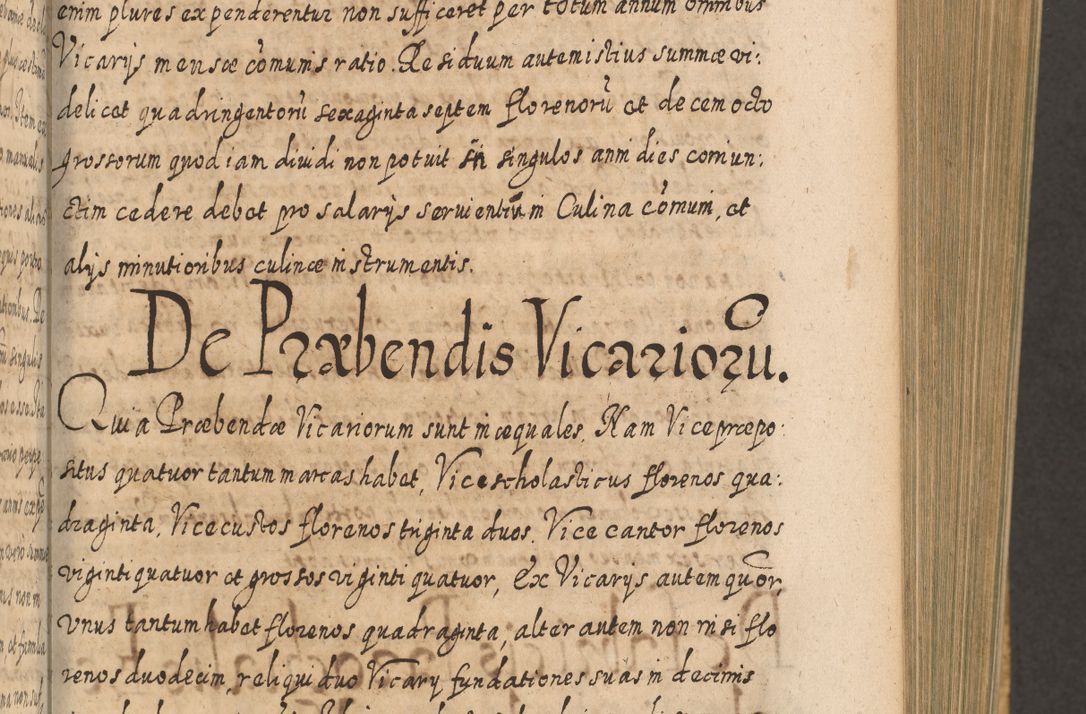 enim plures expenderentur non sufficeret per totum annum omnibus
Vicarijs mensæ cõmunis ratio. Residuum autem istius summæ vi:
delicet quadringentorũ sexaginta septem florenorũ et decem octo
grossorum quod iam dividi non potuit in singulos anni dies coniun:
ctim cedere debet pro salarijs servientium in Culina cõmuni, et
alijs minutioribus culinæ instrumentis.
De Præbendis Vicariorũ.
Quia Præbendæ Vicariorum sunt inæquales. Nam Vicepræpo:
situs quatuor tantum marcas habet, Vicescholasticus florenos qua:
draginta, Vicecustos florenos triginta duos. Vicecantor florenos
viginti quatuor et grossos viginti quatuor, Ex Vicarijs autem quõr,
vnus tantum habet florenos quadraginta, alter autem non nisi flo
renos duodecim, reliqui duo Vicarÿ fundationes suas in decimis